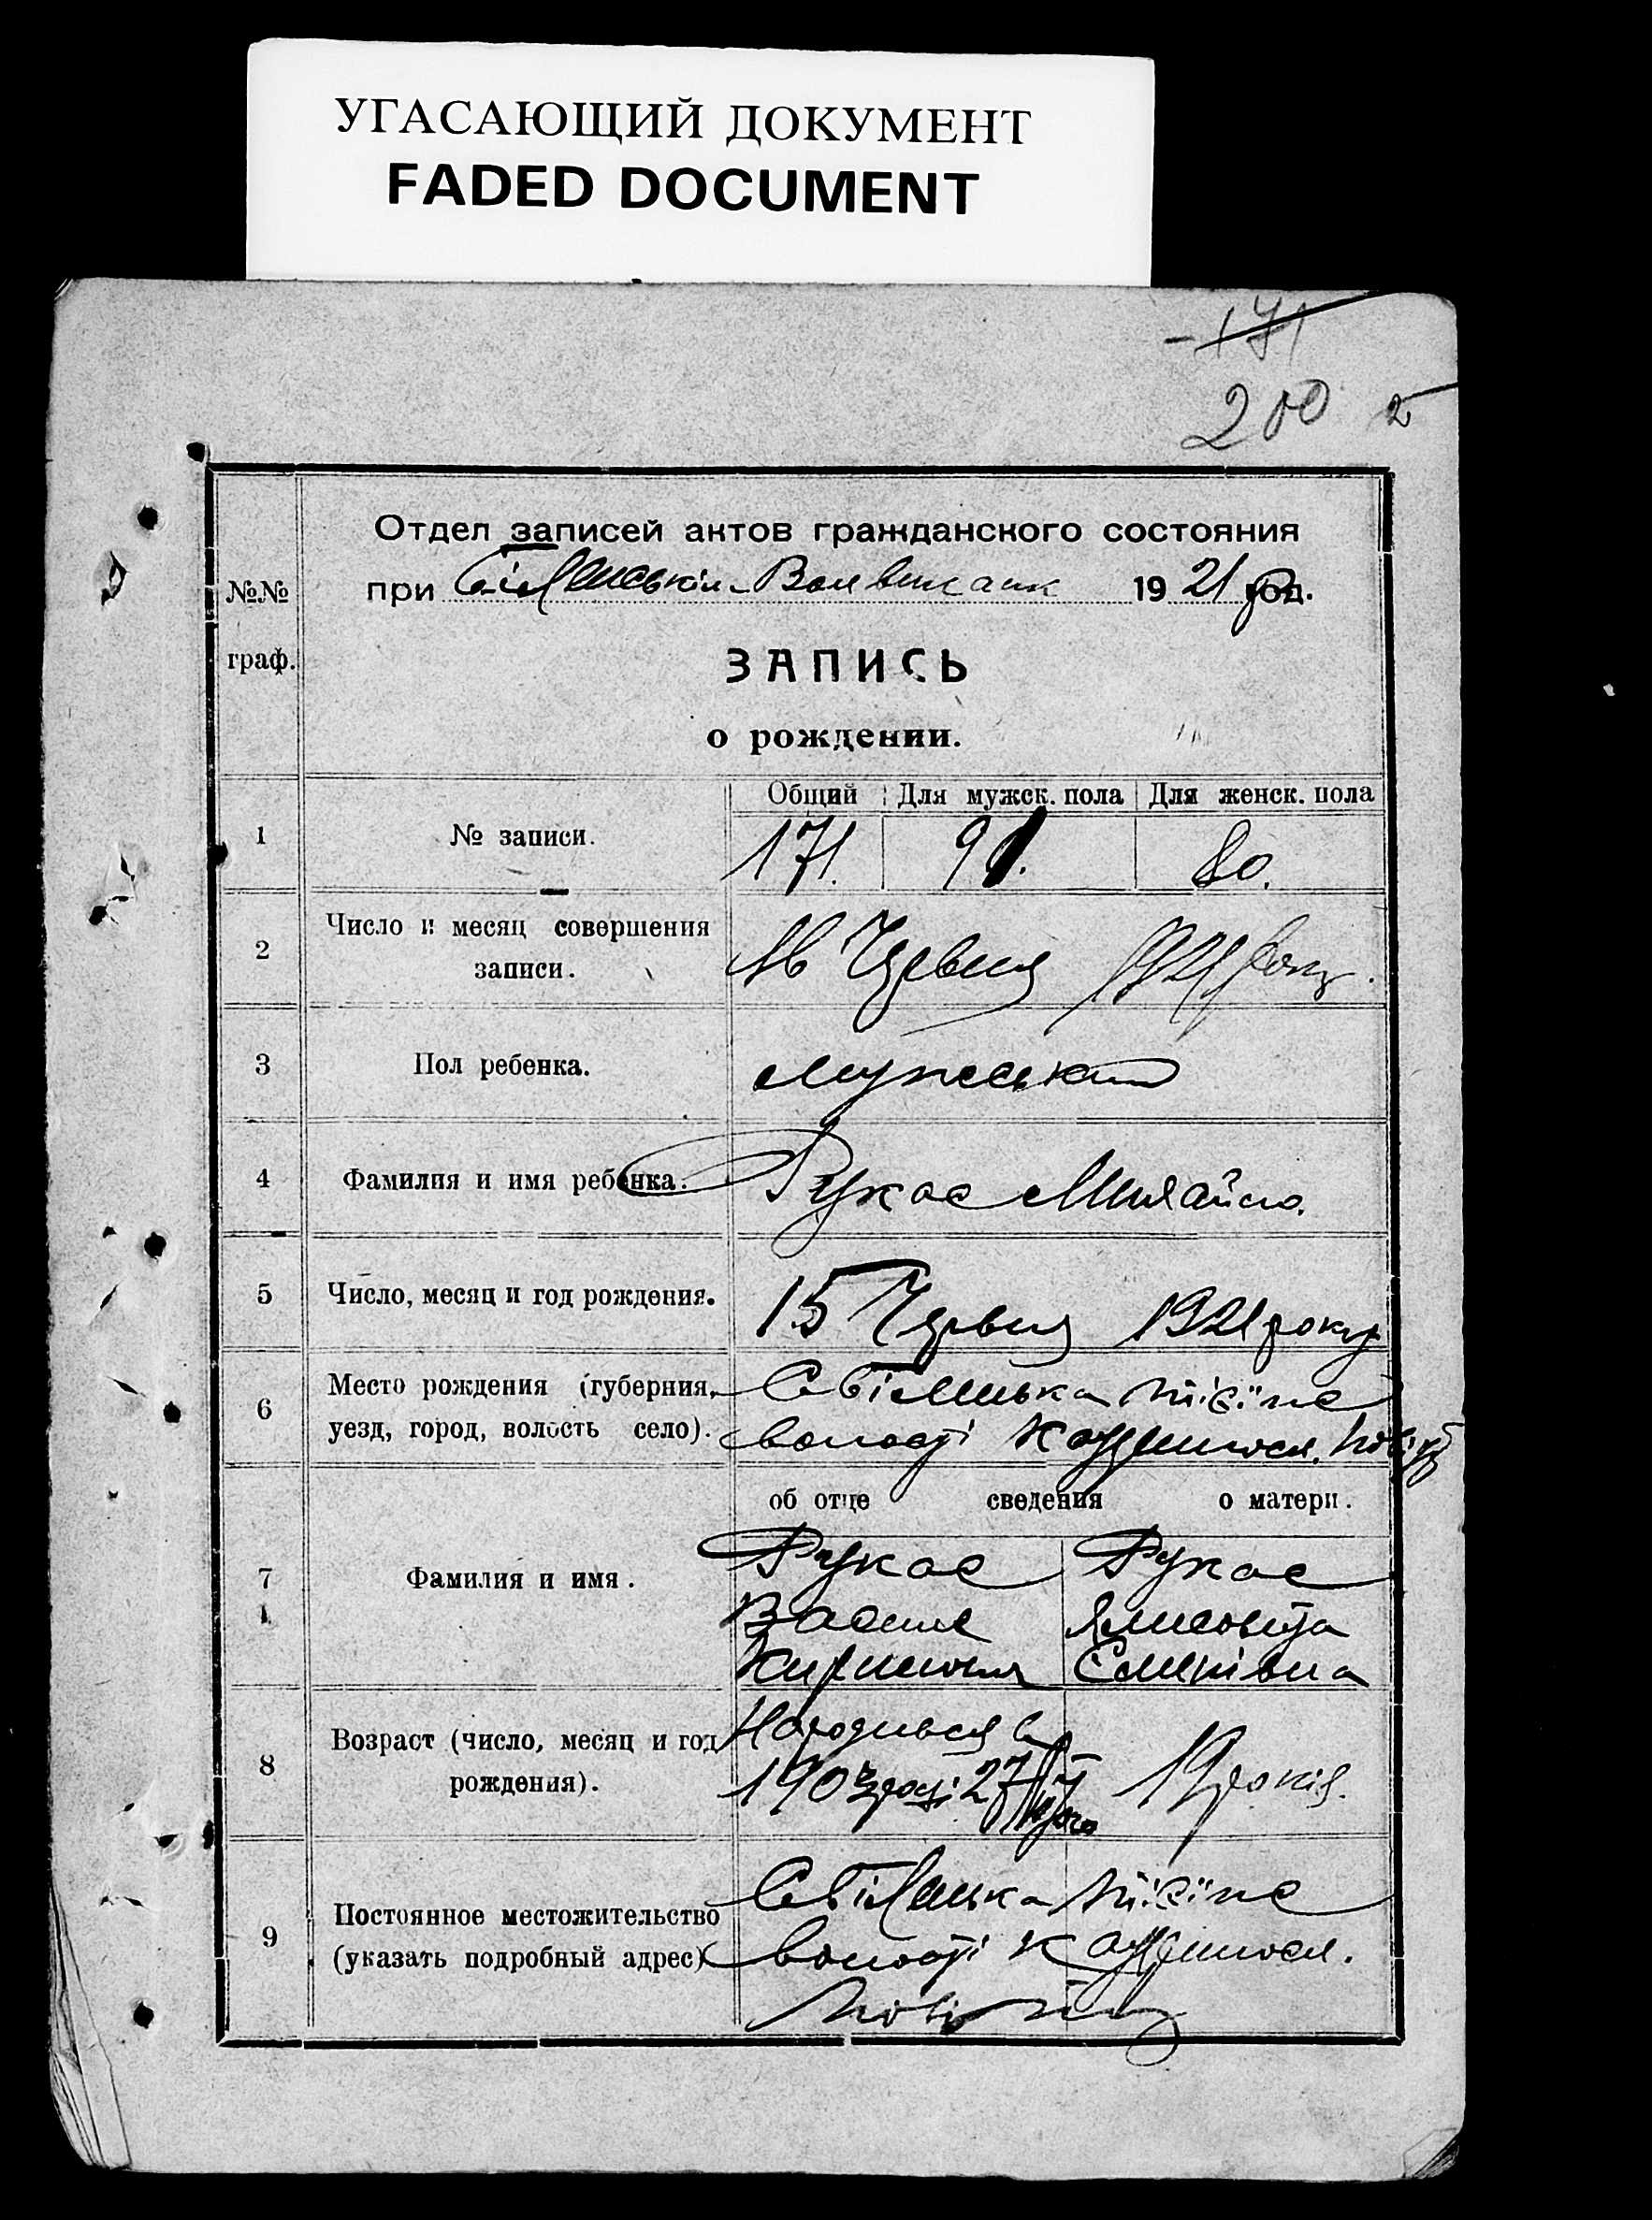 УГАСАЮЩИЙ ДОКУМЕНТ
FADED DOCUMENT
171
200 2
Отдел записей актов гражданского состояния
№№ при 1921 год.
граф.
ЗАПИСЬ
о рождении.
Общий Для мужск. пола Для женск. пола
1 № записи. 171. 91. 80.
2 Число и месяц совершения записи. Червня 1921 року.
3 Пол ребенка. мужеський
4 Фамилия и имя ребенка. Рукас Михайло.
5 Число, месяц и год рождения. 15 Червня 1921 року
6 Место рождения (губерния,
уезд, город, волость село). волості
об отце сведения о матери.
7 Фамилия и имя. Рукас Рукас
Василь
8 Возраст (число, месяц и год Народився в
рождения). 1903 році 27 19 років.
9 Постоянное местожительство
(указать подробный адрес) волості
повіту